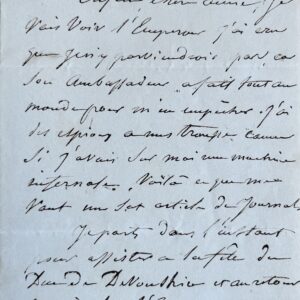 Vais voir l'Empereur j'ai cru
que j'en y parviendrais par ce
Son Ambassadeur a fait tout au
monde pour m'en empêcher. J'ai
des espions à mes trousses comme
si j'avais sur moi une machine
infernale. Voilà ce que me
vaut un sot article de Journal
Je pars dans l'instant
pour assister à la fête du
Duc de Devonshire et au retour